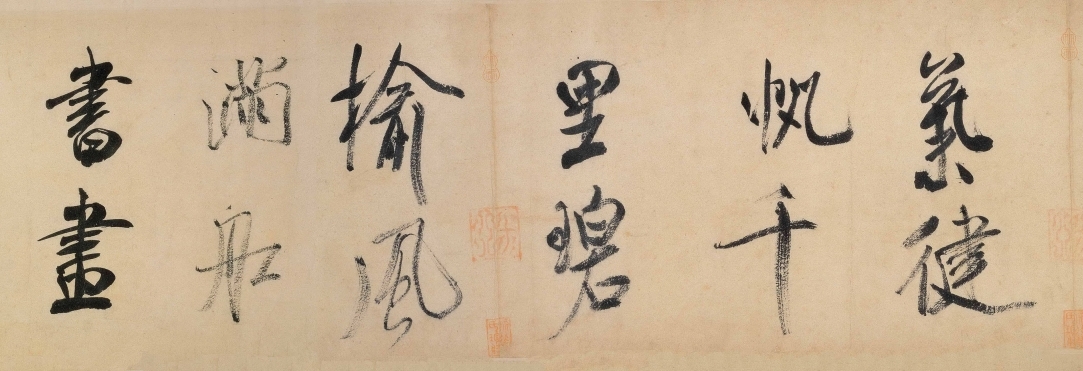 氣健
帆千
里碧
榆風
滿舡
書畫